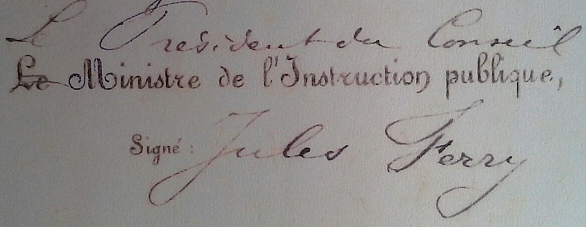 Le Président du Conseil
Le Ministre de l'Instruction publique,
Signé : Jules Ferry